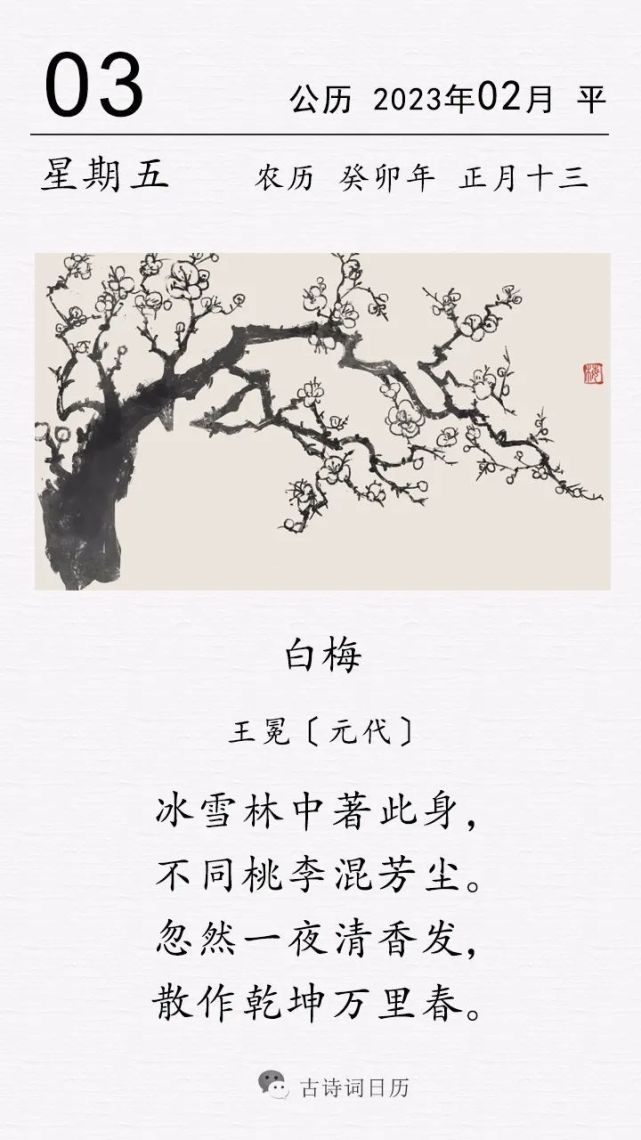 03
公历 2023年02月 平
星期五 农历 癸卯年 正月十三
白梅
王冕〔元代〕
冰雪林中著此身，
不同桃李混芳尘。
忽然一夜清香发，
散作乾坤万里春。
古诗词日历